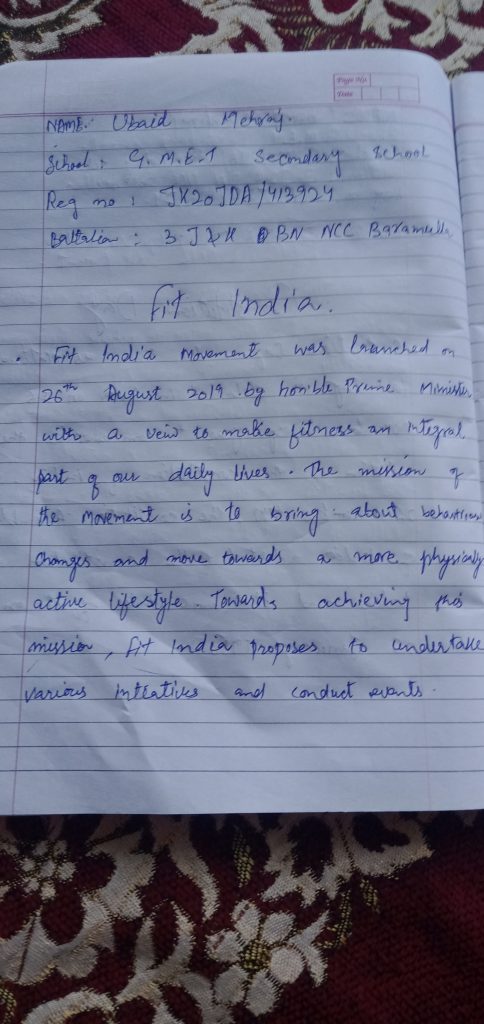 Page No.
Date
NAME: Ubaid Mehraj.
School: G.M.E.T Secondary School
Reg no : JK20JDA/413924
Battalion : 3 J&K BN NCC Baramulla
Fit India.
. Fit India Movement was launched on
26th August 2019 by hon'ble Prime Minister
with a veiw to make fitness an integral
part of our daily lives. The mission of
the Movement is to bring about behaviour
changes and move towards a more physically
active lifestyle. Towards achieving this
mission, fit India proposes to undertake
various Intiatives and conduct events.